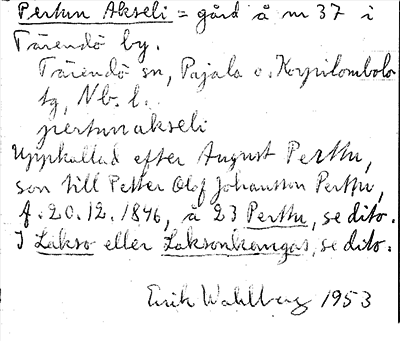 Pertun Akseli = gård å nr 37 i
Tärendö by.
Tärendö sn, Pajala o. Korpilombolo
tg, Nb. l.
pertunakseli
Uppkallad efter August Perttu,
son till Petter Olof Johansson Perttu,
f. 20.12.1846, å 23 Perttu, se dito.
I Lakso eller Laksonkangas, se dito.
Erik Wahlberg 1953